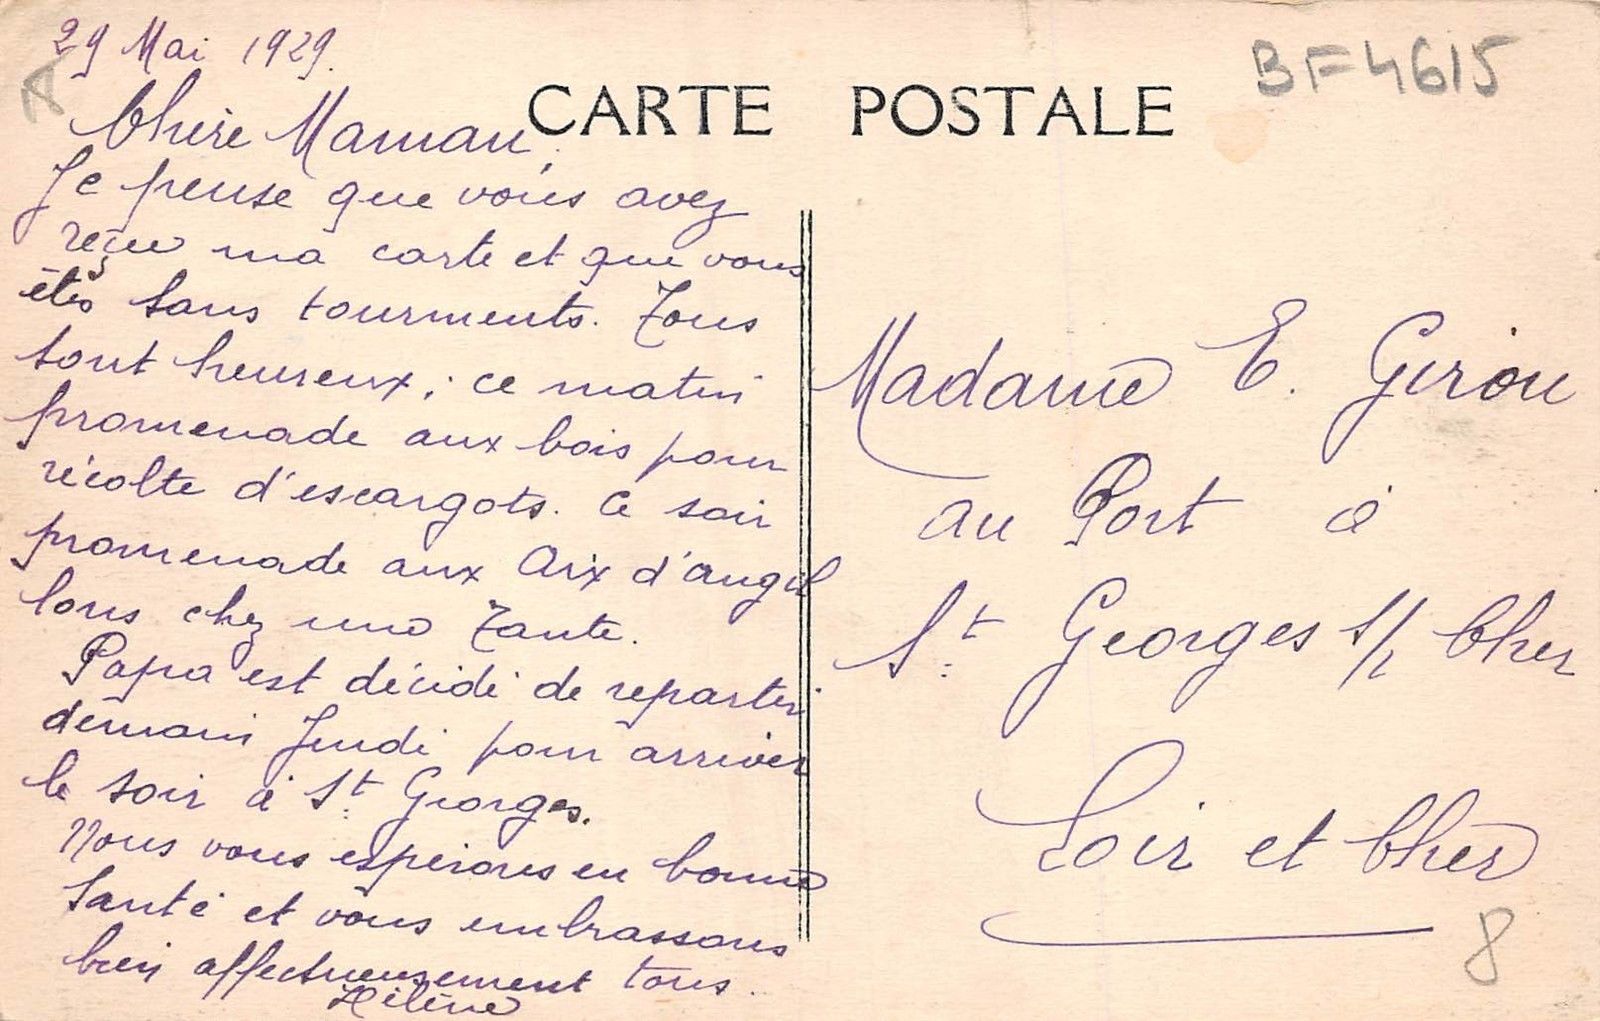 29 Mai 1929.
BF4615
CARTE POSTALE
Chère Maman,
Je pense que vous avez
reçue ma carte et que vous
êtes sans tourments. Tous
sont heureux ; ce matin
promenade aux bois pour
récolte d'escargots. Ce soir
promenade aux Aix d'angil
lons chez une Tante.
Papa est décidé de repartir
demain Jeudi pour arriver
le soir à St Georges.
Nous vous espérons en bonne
santé et vous embrassons
bien affectueusement tous.
Hélène
Madame E. Girou
au Port à
St Georges s/ Cher
Loir et Cher
8